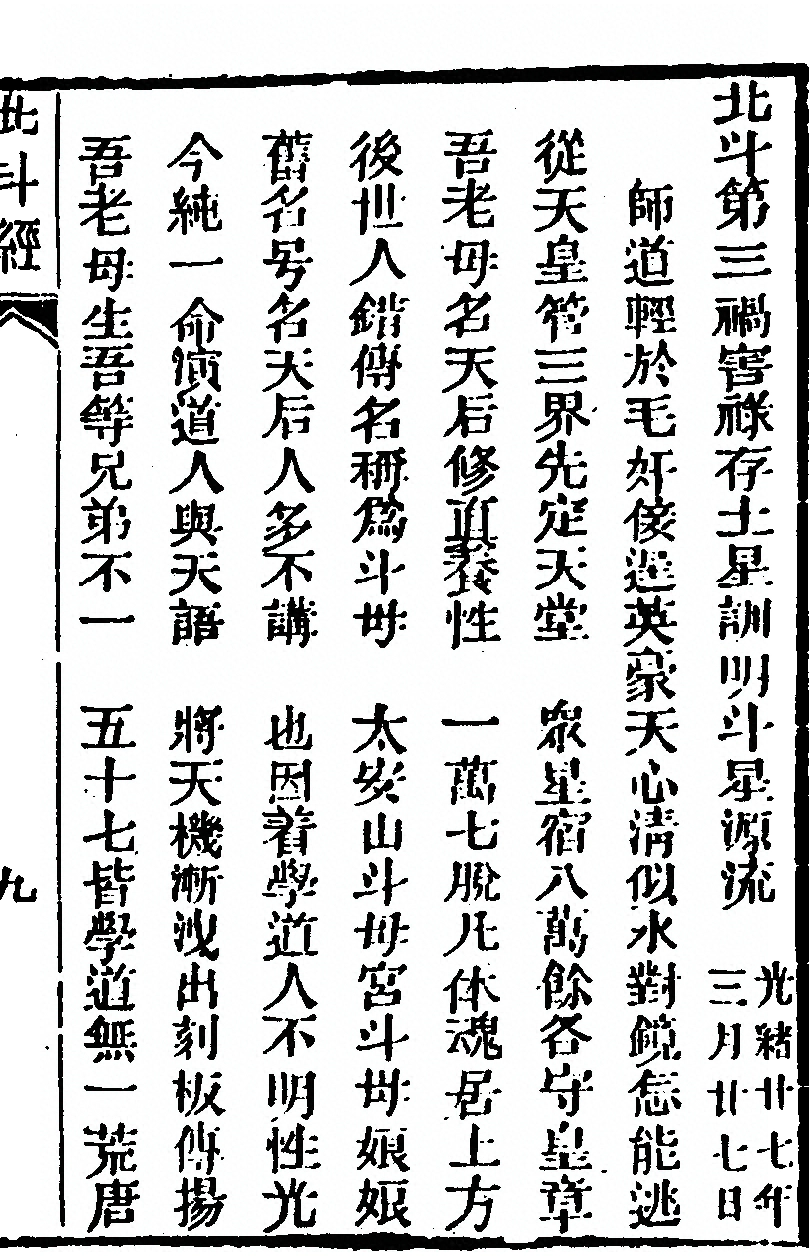 北斗第三禍害祿存土星訓明斗星源流
光緒廿七年
三月廿七日
師道輕於毛奸佞逞英豪天心清似水對鏡怎能逃
從天皇管三界先定天堂　眾星宿八萬餘各守皇章
吾老母名天后修真養性　一萬七脫凡体魂居上方
後世人錯傳名稱為斗母　太安山斗母宮斗母娘娘
舊名号名天后人多不講　也因着學道人不明性光
今純一命演道人與天語　將天機漸洩出刻板傳揚
吾老母生吾等兄弟不一　五十七皆學道無一荒唐
北斗經
九